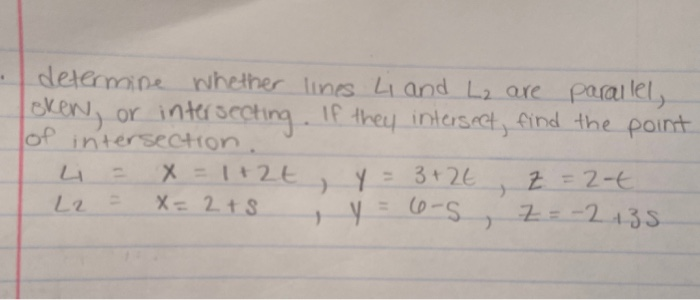 . determine whether lines L1 and L2 are parallel,
skew, or intersecting. If they intersect, find the point
of intersection.
L1 = x = 1+2t, y = 3+2t, z = 2-t
L2 = x = 2+s, y = 6-s, z = -2+3s